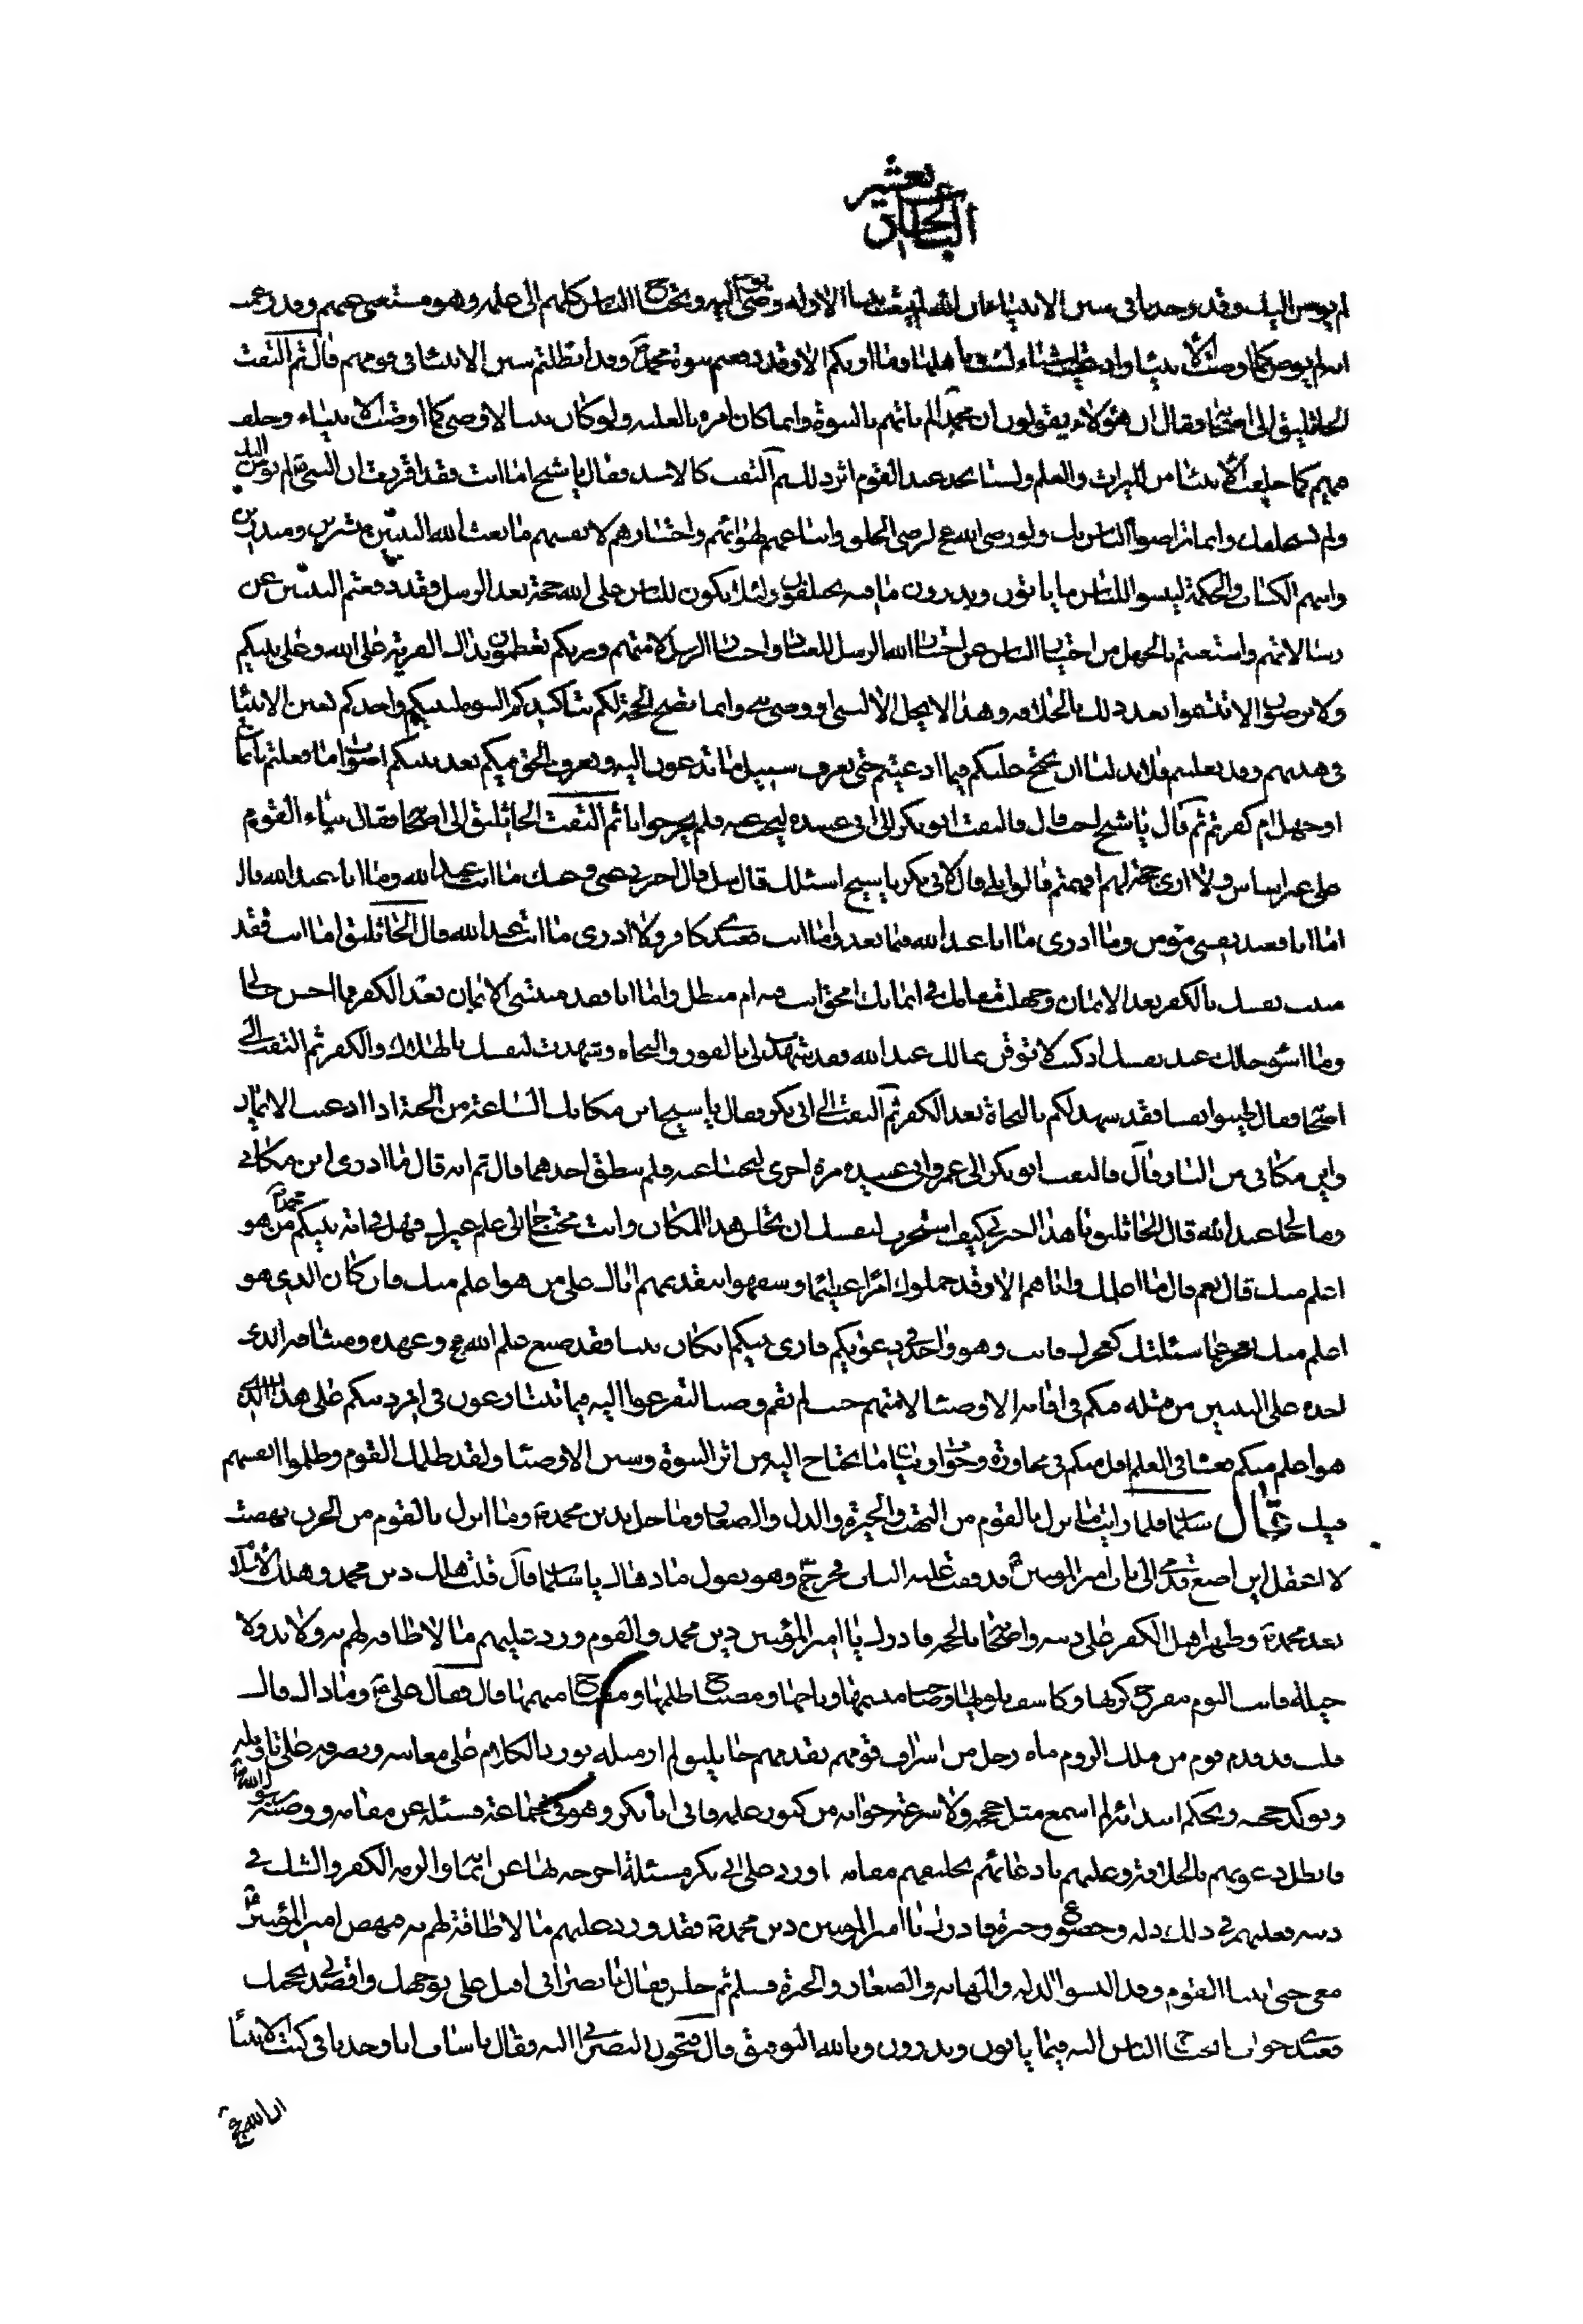 الباب الحادى عشر
لم يوص اليك وقد وجدنا فى سنن الانبياء ان الله لم يبعث نبيا الا وله وصى يوصى اليه ويحتاج الناس كلهم الى علمه وهو مستغنى عنهم وقد زعمت
انه لم يوص كما اوصت الانبياء وادعيت اشياء لست باهلها وما اريكم الا وقد دفعتم نبوة محمد وقد ابطلتم سنن الانبياء فى قومهم قال ثم التفت
الجاثليق الى اصحابه فقال ان هؤلاء يقولون ان محمدا لم ياتهم بالنبوة وانما كان امره بالغلبه ولو كان نبيا لاوصى كما اوصت الانبياء وخلف
فيهم كما خلفت الانبياء من الميراث والعلم ولسنا نجد عند القوم اثر ذلك ثم التفت كالاسد فقال يا شيخ اما انت فقد اقررت ان النبى لم يوص اليك
ولم يستخلفك وانما تراضوا الناس بك ولو رضى الله عز لرضى الخلق واتباعهم لهوائهم واختيارهم لانفسهم ما بعث الله النبيين مبشرين ومنذرين
واتيهم الكتاب والحكمة ليبينوا للناس ما ياتون ويذرون وما فيه يختلفون ولئلا يكون للناس على الله حجة بعد الرسل فقد دفعتم النبيين عن
رسالاتهم واستغنيتم بالجهل من اختيار الناس عن اختيار الله الرسل للعباد واختيار الرسل لامتهم ونريكم تعظمون بذلك الفرية على الله وعلى نبيكم
ولا ترضون الا ان تتسموا بعد ذلك بالخلافه وهذا لا يحل الا لنبى او وصى نبى وانما تصح الحجة لكم بتاكيدكم النبوة لنبيكم واخذكم بسنن الانبياء
فى هديهم وقد تغلبتم فلا بد لنا ان نحتج عليكم فيما ادعيتم حتى نعرف سبيل ما تدعون اليه ونعرف الحق فيكم بعد نبيكم اصواب ما فعلتم بايمان
او جهل ام كفرتم ثم قال يا شيخ اجب قال فالتفت ابو بكر الى ابى عبيده ليجيب عنه فلم يحر جوابا ثم التفت الجاثليق الى اصحابه فقال بناء القوم
على غير اساس ولا ارى حجة لهم افهمتم قالوا بلى ثم قال لابى بكر يا شيخ اسئلك قال سل قال اخبرنى عنى وعنك ما انت عند الله وما انا عند الله قال
اما انا فعند نفسى مؤمن وما ادرى ما انا عند الله فيما بعد واما انت فعندى كافر ولا ادرى ما انت عند الله قال الجاثليق اما انت فقد
منيت نفسك بالكفر بعد الايمان وجهلت مقامك فى ايمانك امحق انت فيه ام مبطل واما انا فقد منيتنى الايمان بعد الكفر فما احسن حالى
وما اسوء حالك عند نفسك اذ كنت لا توقن بما لك عند الله فقد شهدت لى بالفوز والنجاه وشهدت لنفسك بالهلاك والكفر ثم التفت الى
اصحابه فقال طيبوا نفسا فقد شهد لكم بالنجاة بعد الكفر ثم التفت الى ابى بكر فقال يا شيخ اين مكانك الساعة من الجنة اذا ادعيت الايمان
واين مكانى من النار قال فالتفت ابو بكر الى عمر وابى عبيده مرة اخرى ليجيبا عنه فلم ينطق احدهما قال ثم انه قال ما ادرى اين مكانى
وما حالى عند الله قال الجاثليق يا هذا اخبرنى كيف استجزت لنفسك ان تجلس هذا المكان وانت محتاج الى علم غيرك فهل فى امة نبيكم محمد من هو
اعلم منك قال نعم قال ما اعلمك واياهم الا وقد حملوك امرا عظيما وسفهوا بتقديمهم اياك على من هو اعلم منك فان كان الذى هو
اعلم منك يعجز عما سئلتك كعجزك فانت وهو واحد فى دعويكم فارى نبيكم ان كان نبيا فقد ضيع علم الله عز وعهده وميثاقه الذى
اخذه على النبيين من قبله منكم فى اقامة الاوصياء لامتهم حيث لم يقم وصيا لتفزعوا اليه فيما تتنازعون فى امر دينكم فدلونى على هذا الذى
هو اعلم منكم فعساه فى العلم اكثر منكم فى محاورة وجواب وبيان ما يحتاج اليه من اثر النبوة وسنن الاوصياء ولقد ظلمك القوم وظلموا انفسهم
فيك قال سلمان فلما رايت ما نزل بالقوم من البهت والحيرة والذل والصغار وما حل بدين محمد وما نزل بالقوم من الحزن نهضت
لا اعقل اين اضع قدمى الى باب امير المؤمنين فدققت عليه الباب فخرج وهو يقول ما دهاك يا سلمان قال قلت هلك دين محمد وهلك الاسلام
بعد محمد وظهر اهل الكفر على دينه واصحابه بالحجه فادرك يا امير المؤمنين دين محمد والقوم قد ورد عليهم ما لا طاقه لهم به ولا بد ولا
حيلة وانت اليوم مفرج كربها وكاشف بلويها وصاحب ميسمها وتاجها ومصباح ظلمها ومفتاح مبهمها قال فقال على وما ذاك قال
قلت قد قدم قوم من ملك الروم فى مائه رجل من اشراف قومهم يقدمهم جاثليق لم ار مثله يورد الكلام على معانيه ويصرفه على تاويله
ويؤكد حجته ويحكم ابتدائه لم اسمع مثل حجته ولا سرعة جوابه من كنوز علمه فاتى ابا بكر وهو فى جماعة فسئله عن مقامه ووصية رسول الله
فابطل دعويهم بالخلافة وغلبهم بادعائهم تخليفهم مقامه فاورد على ابى بكر مسئلة اخرجه بها عن ايمانه والزمه الكفر والشك فى
دينه فعلتهم فى ذلك ذله وخضوع وحيرة فادرك يا امير المؤمنين دين محمد فقد ورد عليهم ما لا طاقة لهم به فنهض امير المؤمنين
معى حتى اتينا القوم وقد البسوا الذله والمهانه والصغار والحيرة فسلم ثم جلس فقال يا نصرانى اقبل على بوجهك واقصدنى بحاجتك
فعندى جواب ما يحتاج الناس اليه فيما ياتون ويذرون وبالله التوفيق قال فتحول النصرانى اليه وقال يا شاب انا وجدنا فى كتب الانبياء
ان الله